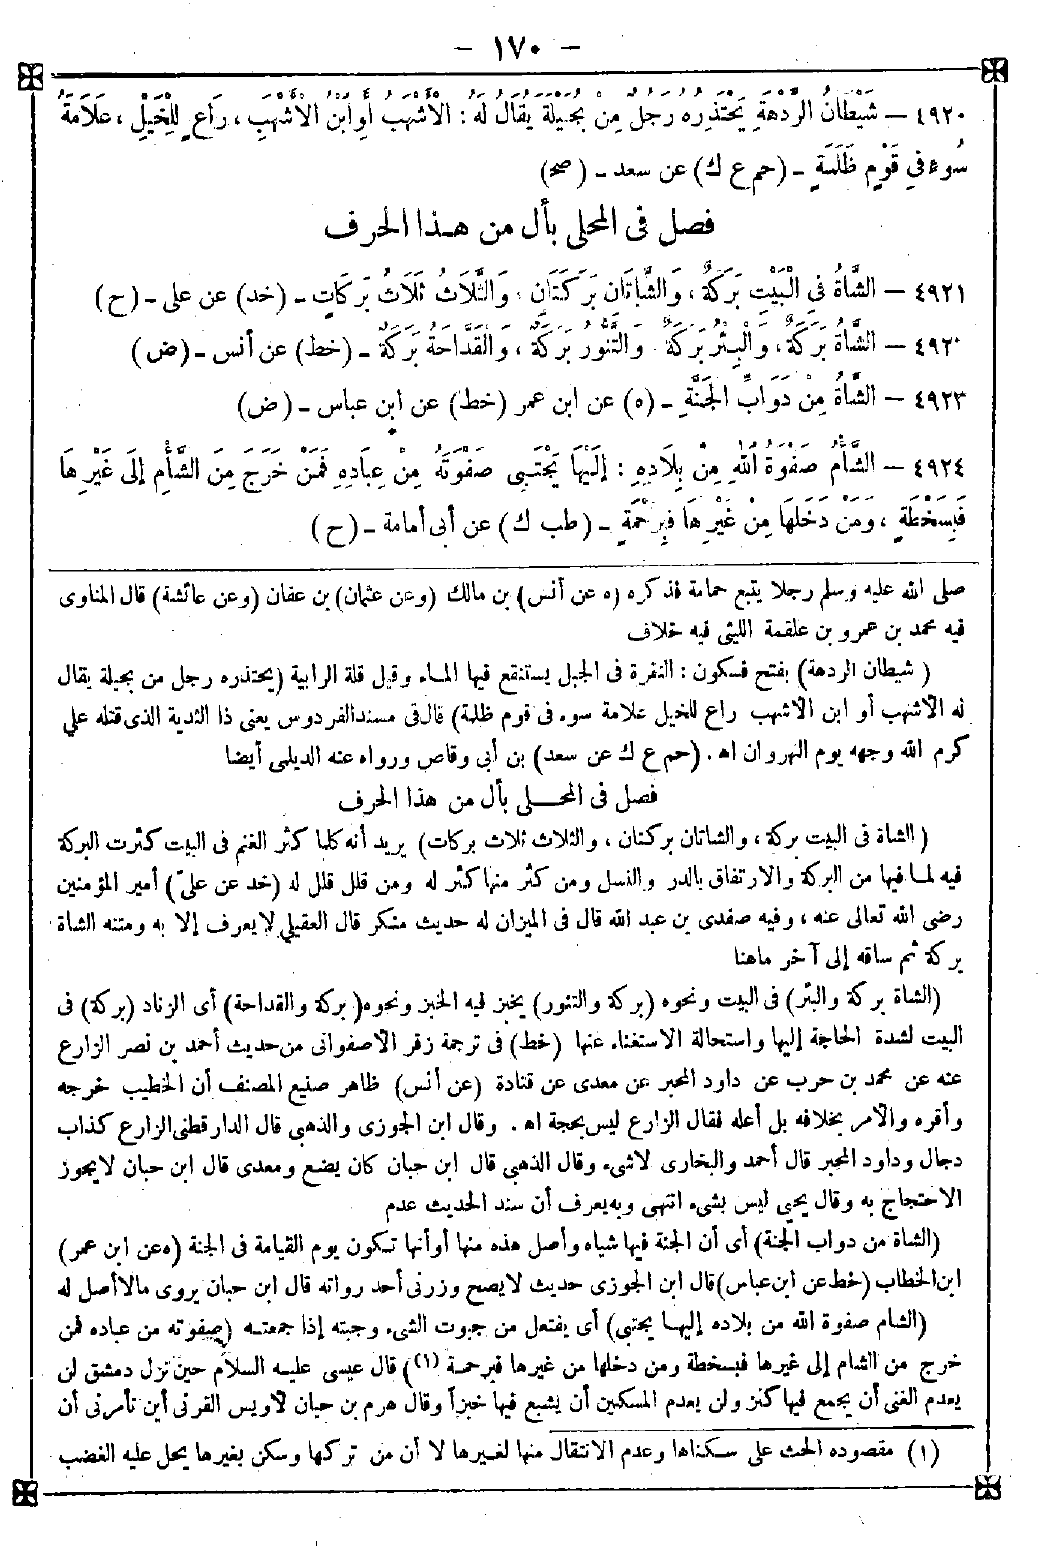 - ١٧٠ -
٤٩٢٠ – شَيْطَانُ الرَّدْهَةِ يَحْتَذِرُهُ رَجُلٌ مِنْ بَجِيلَةَ يُقَالُ لَهُ : الْأَشْهَبُ أَوِ ابْنُ الْأَشْهَبِ ، رَاعٍ لِلْخَيْلِ ، عَلَامَةُ
سُوءٍ فِي قَوْمٍ ظَلَمَةٍ – (حم ع ك) عن سعد – (صح)
فصل فى المحلى بأل من هذا الحرف
٤٩٢١ – الشَّاةُ فِي الْبَيْتِ بَرَكَةٌ ، وَالشَّاتَانِ بَرَكَتَانِ ، وَالثَّلَاثُ ثَلَاثُ بَرَكَاتٍ – (خد) عن على – (ح)
٤٩٢٠ – الشَّاةُ بَرَكَةٌ ، وَالْبِئْرُ بَرَكَةٌ ، وَالتَّنُّورُ بَرَكَةٌ ، وَالْقَدَّاحَةُ بَرَكَةٌ – (خط) عن أنس – (ض)
٤٩٢٣ – الشَّاةُ مِنْ دَوَابِّ الْجَنَّةِ – (ه) عن ابن عمر (خط) عن ابن عباس – (ض)
٤٩٢٤ – الشَّأْمُ صَفْوَةُ اللهِ مِنْ بِلَادِهِ : إِلَيْهَا يَجْتَبِى صَفْوَتَهُ مِنْ عِبَادِهِ فَمَنْ خَرَجَ مِنَ الشَّأْمِ إِلَى غَيْرِهَا
فَبِسَخْطَةٍ ، وَمَنْ دَخَلَهَا مِنْ غَيْرِهَا فَبِرَحْمَةٍ – (طب ك) عن أبى أمامة – (ح)
صلى الله عليه وسلم رجلا يتبع حمامة فذكره (ه عن أنس) بن مالك (وعن عثمان) بن عفان (وعن عائشة) قال المناوى
فيه محمد بن عمرو بن علقمة الليثى فيه خلاف
( شيطان الردهة) بفتح فسكون : النقرة فى الجبل يستنقع فيها الماء وقيل قلة الرابية (يحتذره رجل من بجيلة يقال
له الأشهب أو ابن الأشهب راع للخيل علامة سوء فى قوم ظلمة) قال فى مسند الفردوس يعنى ذا الثدية الذى قتله علي
كرم الله وجهه يوم النهروان اه . (حم ع ك عن سعد) بن أبى وقاص ورواه عنه الديلمى أيضا
فصل فى المحلى بأل من هذا الحرف
( الشاة فى البيت بركة ، والشاتان بركتان ، والثلاث ثلاث بركات) يريد أنه كلما كثر الغنم فى البيت كثرت البركة
فيه لما فيها من البركة والارتفاق بالدر والنسل ومن كثر منها كثر له ومن قلل قلل له (خد عن علىّ) أمير المؤمنين
رضى الله تعالى عنه ، وفيه صفدى بن عبد الله قال فى الميزان له حديث منكر قال العقيلي لا يعرف إلا به ومتنه الشاة
بركة ثم ساقه إلى آخر ماهنا
(الشاة بركة والبئر) فى البيت ونحوه (بركة والتنور) يخبز فيه الخبز ونحوه (بركة والقداحة) أى الزناد (بركة) فى
البيت لشدة الحاجة إليها واستحالة الاستغناء عنها (خط) فى ترجمة زفر الأصفوانى من حديث أحمد بن نصر الزارع
عنه عن محمد بن حرب عن داود المحبر عن معدى عن قتادة (عن أنس) ظاهر صنيع المصنف أن الخطيب خرجه
وأقره والأمر بخلافه بل أعله فقال الزارع ليس بحجة اه . وقال ابن الجوزى والذهبى قال الدارقطنى الزارع كذاب
دجال وداود المحبر قال أحمد والبخارى لا شىء وقال الذهبى قال ابن حبان كان يضع ومعدى قال ابن حبان لا يجوز
الاحتجاج به وقال يحيى ليس بشىء انتهى وبه يعرف أن سند الحديث عدم
(الشاة من دواب الجنة) أى أن الجنة فيها شياه وأصل هذه منها أو أنها تكون يوم القيامة فى الجنة (ه عن ابن عمر)
ابن الخطاب (خط عن ابن عباس) قال ابن الجوزى حديث لا يصح وزربى أحد رواته قال ابن حبان يروى مالا أصل له
(الشام صفوة الله من بلاده إليها يجتبى) أى يفتعل من جبوت الشىء وجبيته إذا جمعته (صفوته من عباده فمن
خرج من الشام إلى غيرها فبسخطة ومن دخلها من غيرها فبرحمة (١)) قال عيسى عليه السلام حين نزل دمشق لن
يعدم الغنى أن يجمع فيها كنز ولن يعدم المسكين أن يشبع فيها خبزاً وقال هرم بن حبان لأويس القرنى أين تأمرنى أن
(١) مقصوده الحث على سكناها وعدم الانتقال منها لغيرها لا أن من تركها وسكن بغيرها يحل عليه الغضب